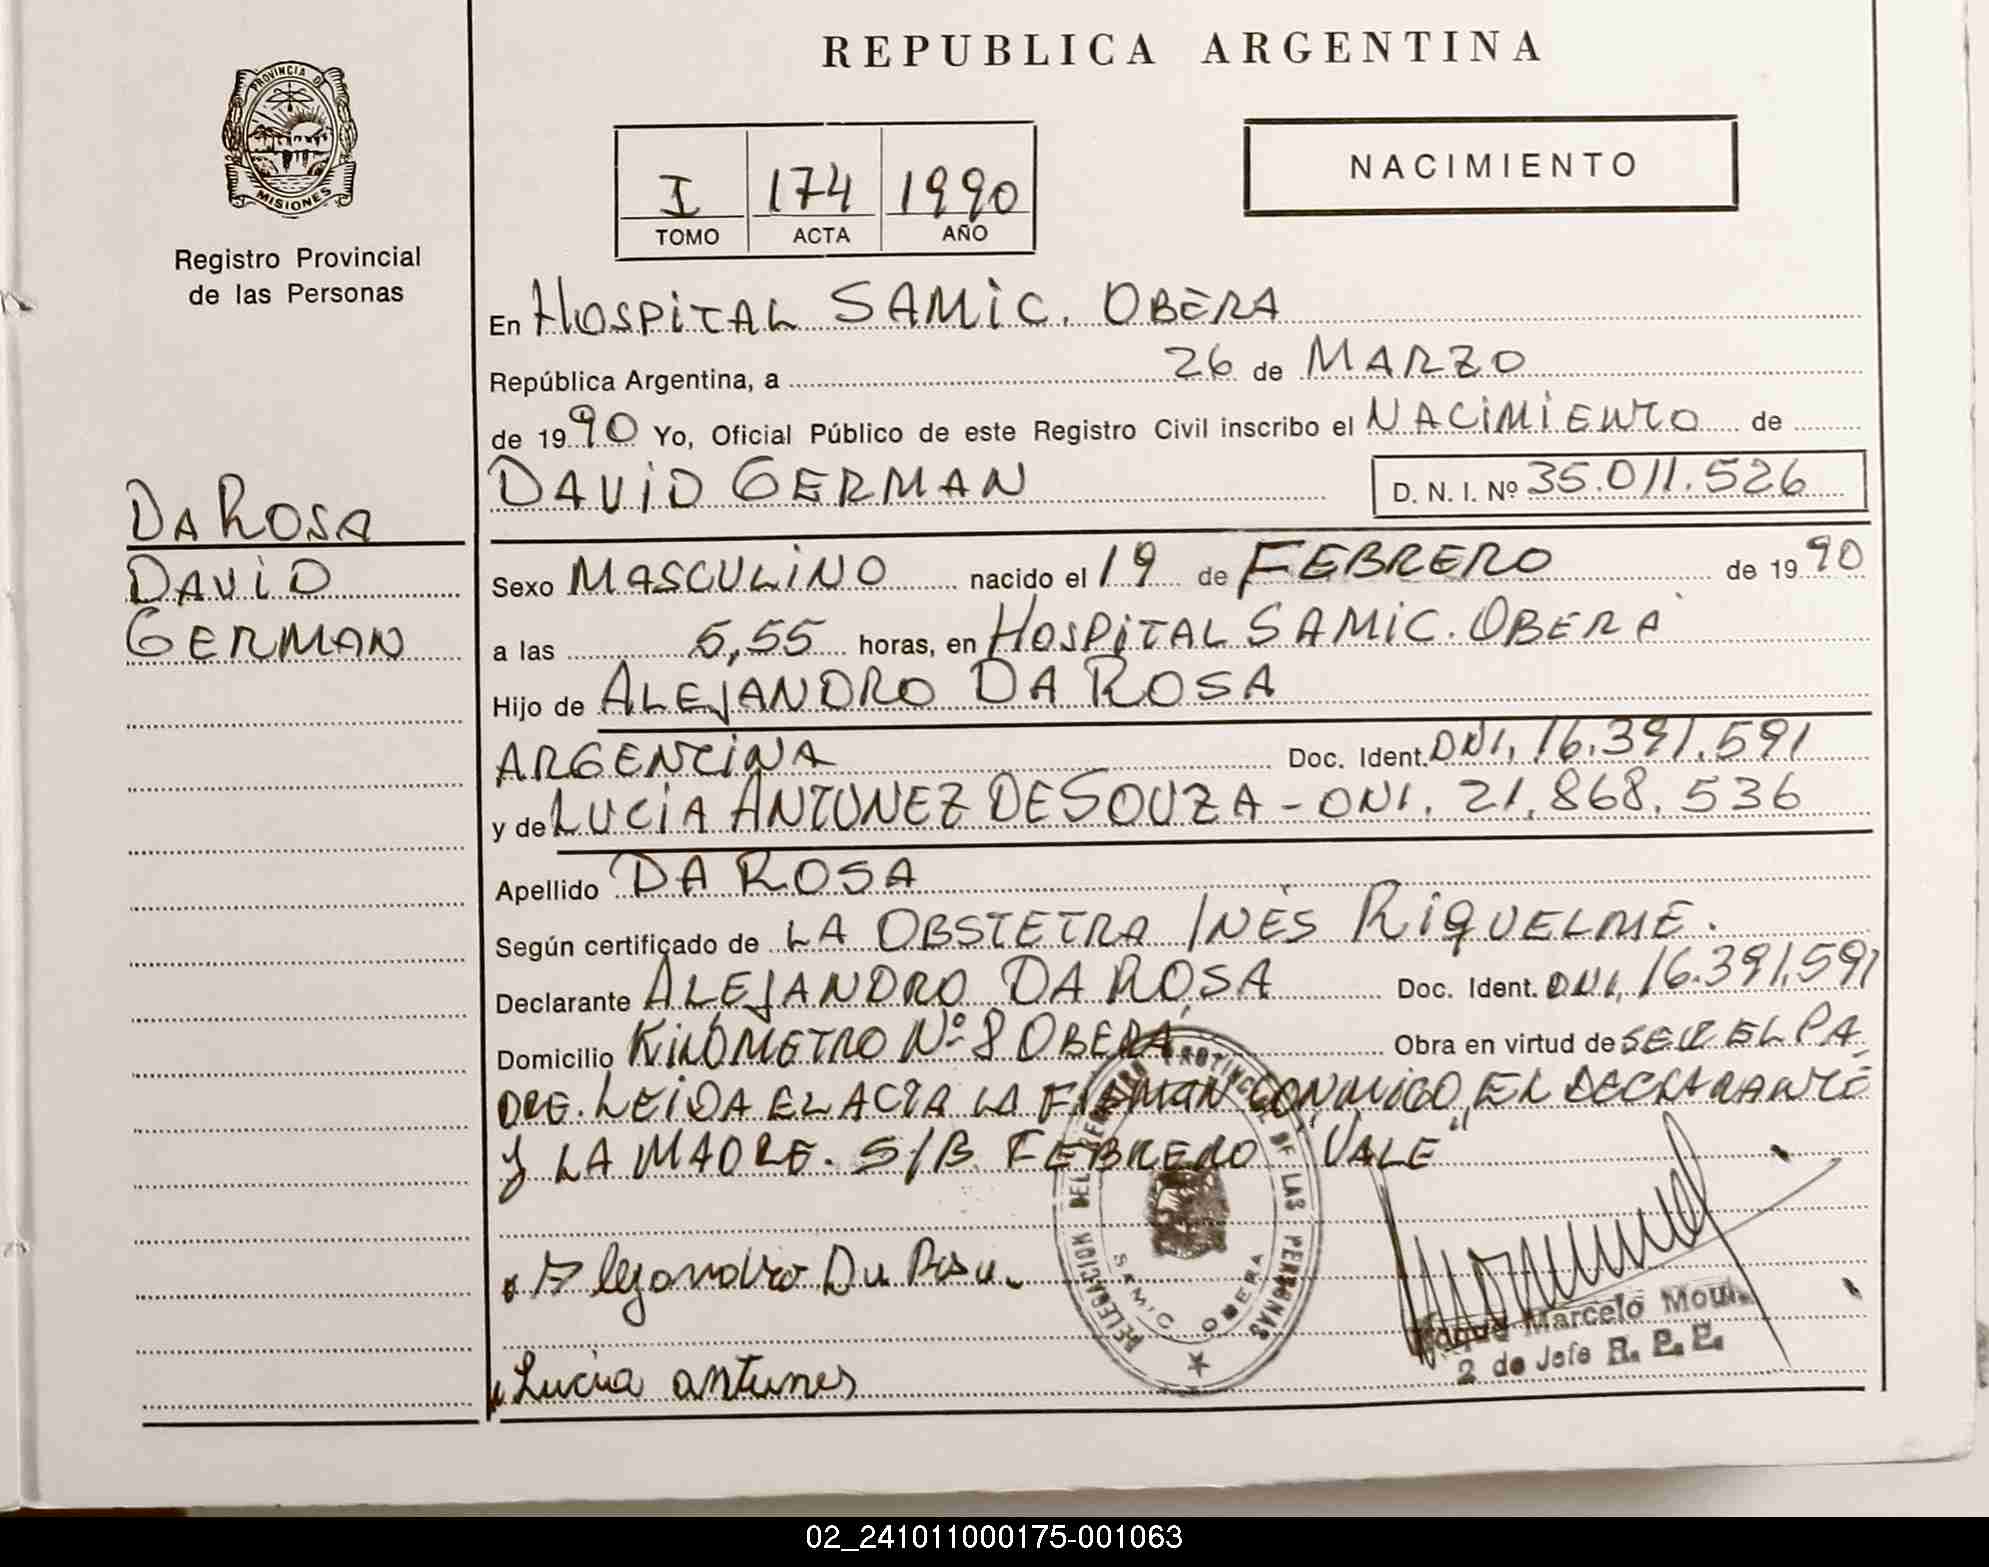 REPUBLICA ARGENTINA
PROVINCIA DE MISIONES
Registro Provincial
de las Personas
I 174 1990
TOMO ACTA AÑO
NACIMIENTO
En HOSPITAL SAMIC. OBERA
República Argentina, a 26 de MARZO
de 1990 Yo, Oficial Público de este Registro Civil inscribo el NACIMIENTO de
DAVID GERMAN D. N. I. Nº 35.011.526
DA ROSA
DAVID
GERMAN
Sexo MASCULINO nacido el 19 de FEBRERO de 1990
a las 5,55 horas, en HOSPITAL SAMIC. OBERÁ
Hijo de ALEJANDRO DA ROSA
ARGENTINA Doc. Ident. DNI, 16.391.591
y de LUCIA ANTUNEZ DE SOUZA - DNI. 21.868.536
Apellido DA ROSA
Según certificado de LA OBSTETRA INÉS RIQUELME.
Declarante ALEJANDRO DA ROSA Doc. Ident. DNI, 16.391.591
Domicilio KILÓMETRO Nº 8 OBERÁ Obra en virtud de SER EL PA-
DRE. LEIDA EL ACTA LA FIRMAN CONMIGO, EL DECLARANTE
Y LA MADRE. S/B FEBRERO "VALE"
Alejandro Da Rosa
Lucia antunes
DELEGACION DEL REGISTRO PROVINCIAL DE LAS PERSONAS
SAMIC OBERA
Marcelo
2 do Jefe R. P. P.
02_241011000175-001063